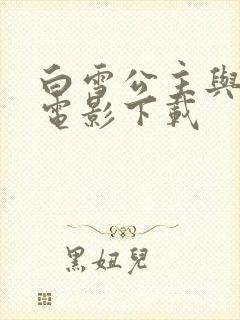 白雪公主與
電影下載
黑妞兒